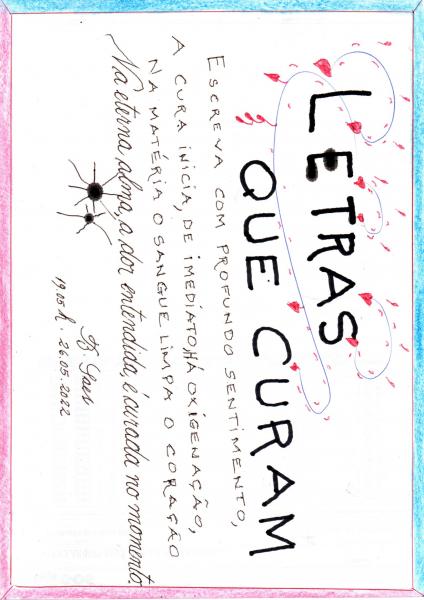 LETRAS
QUE CURAM
ESCREVA COM PROFUNDO SENTIMENTO,
A CURA INICIA, DE IMEDIATO, HÁ OXIGENAÇÃO,
NA MATÉRIA O SANGUE LIMPA O CORAÇÃO
Na eterna alma, a dor entendida, é curada no momento.
19,05 h. 26.05.2022